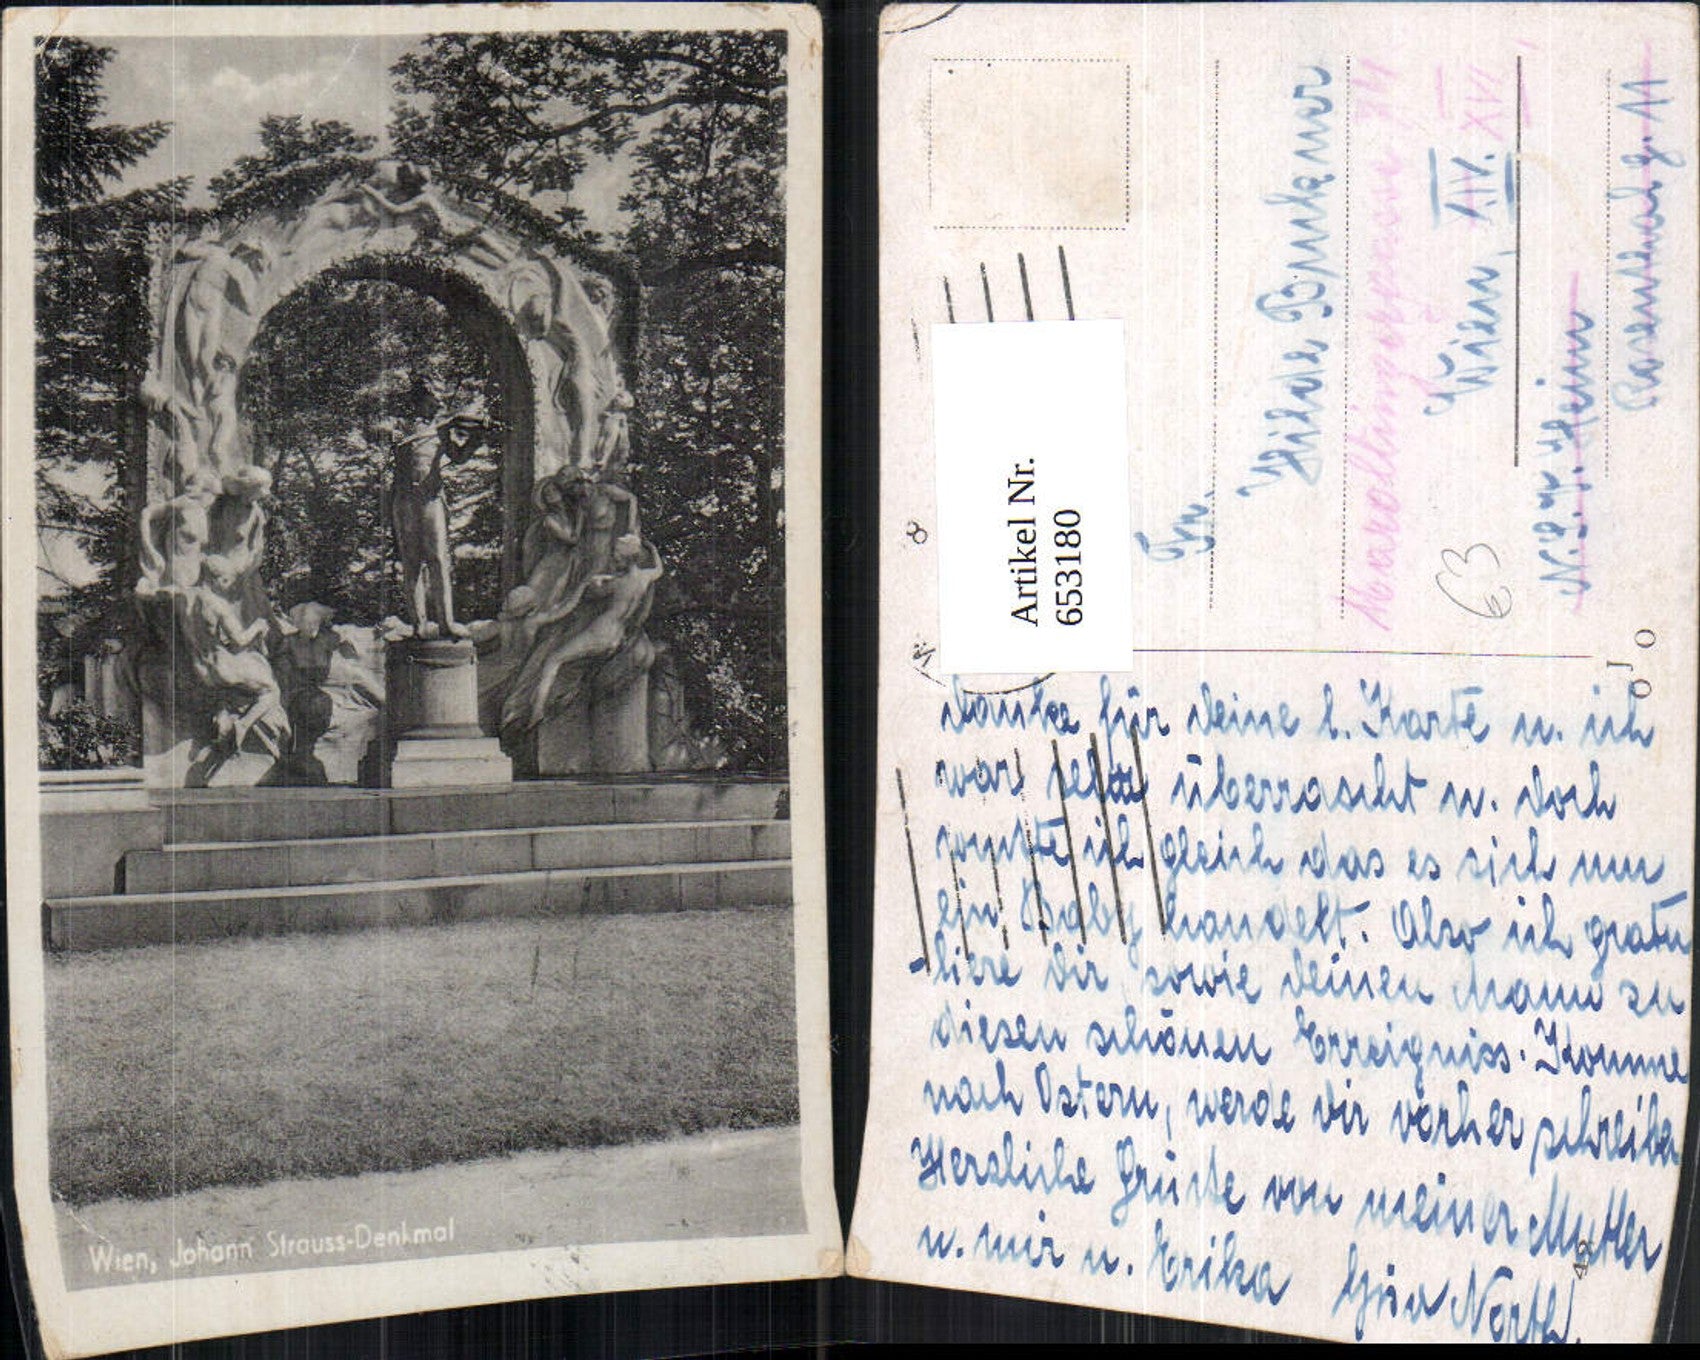 Wien, Johann Strauss-Denkmal
Artikel Nr.
653180
Fr.
Hilde
Wien, XIV. XVI
N.Ö.
Rosenthalg. 11
63
danke für deine l. Karte u. ich
war selbst überrascht u. doch
wußte ich gleich das es sich um
ein Baby handelt. Also ich gratu
liere dir sowie deinen Mann zu
diesen schönen Erreigniss. Komme
nach Ostern, werde dir vorher schreiben
Herzliche Grüße von meiner Mutter
u. mir u. Erika
42